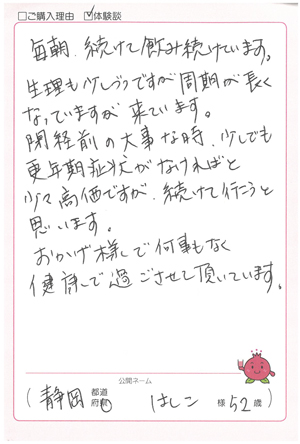 □ご購入理由 ☑体験談
毎朝、続けて飲み続けています。
生理も少しづつですが周期が長く
なっていますが来ています。
閉経前の大事な時、少しでも
更年期症状がなければと
少々高価ですが、続けて行こうと
思います。
おかげ様で何事もなく
健康で過ごさせて頂いています。
公開ネーム
(静岡 都道府県 はしこ 様 52歳)